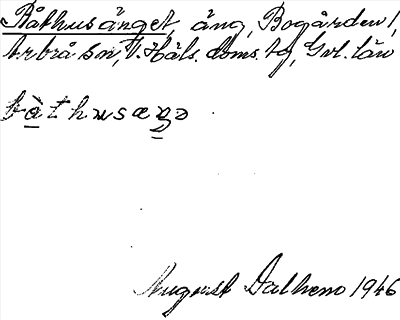 Båthusänget, äng, Bogården 1,
Arbrå sn, V. Häls. doms. tg, Gvl. län
bàthusæŋə
August Dalhem 1946